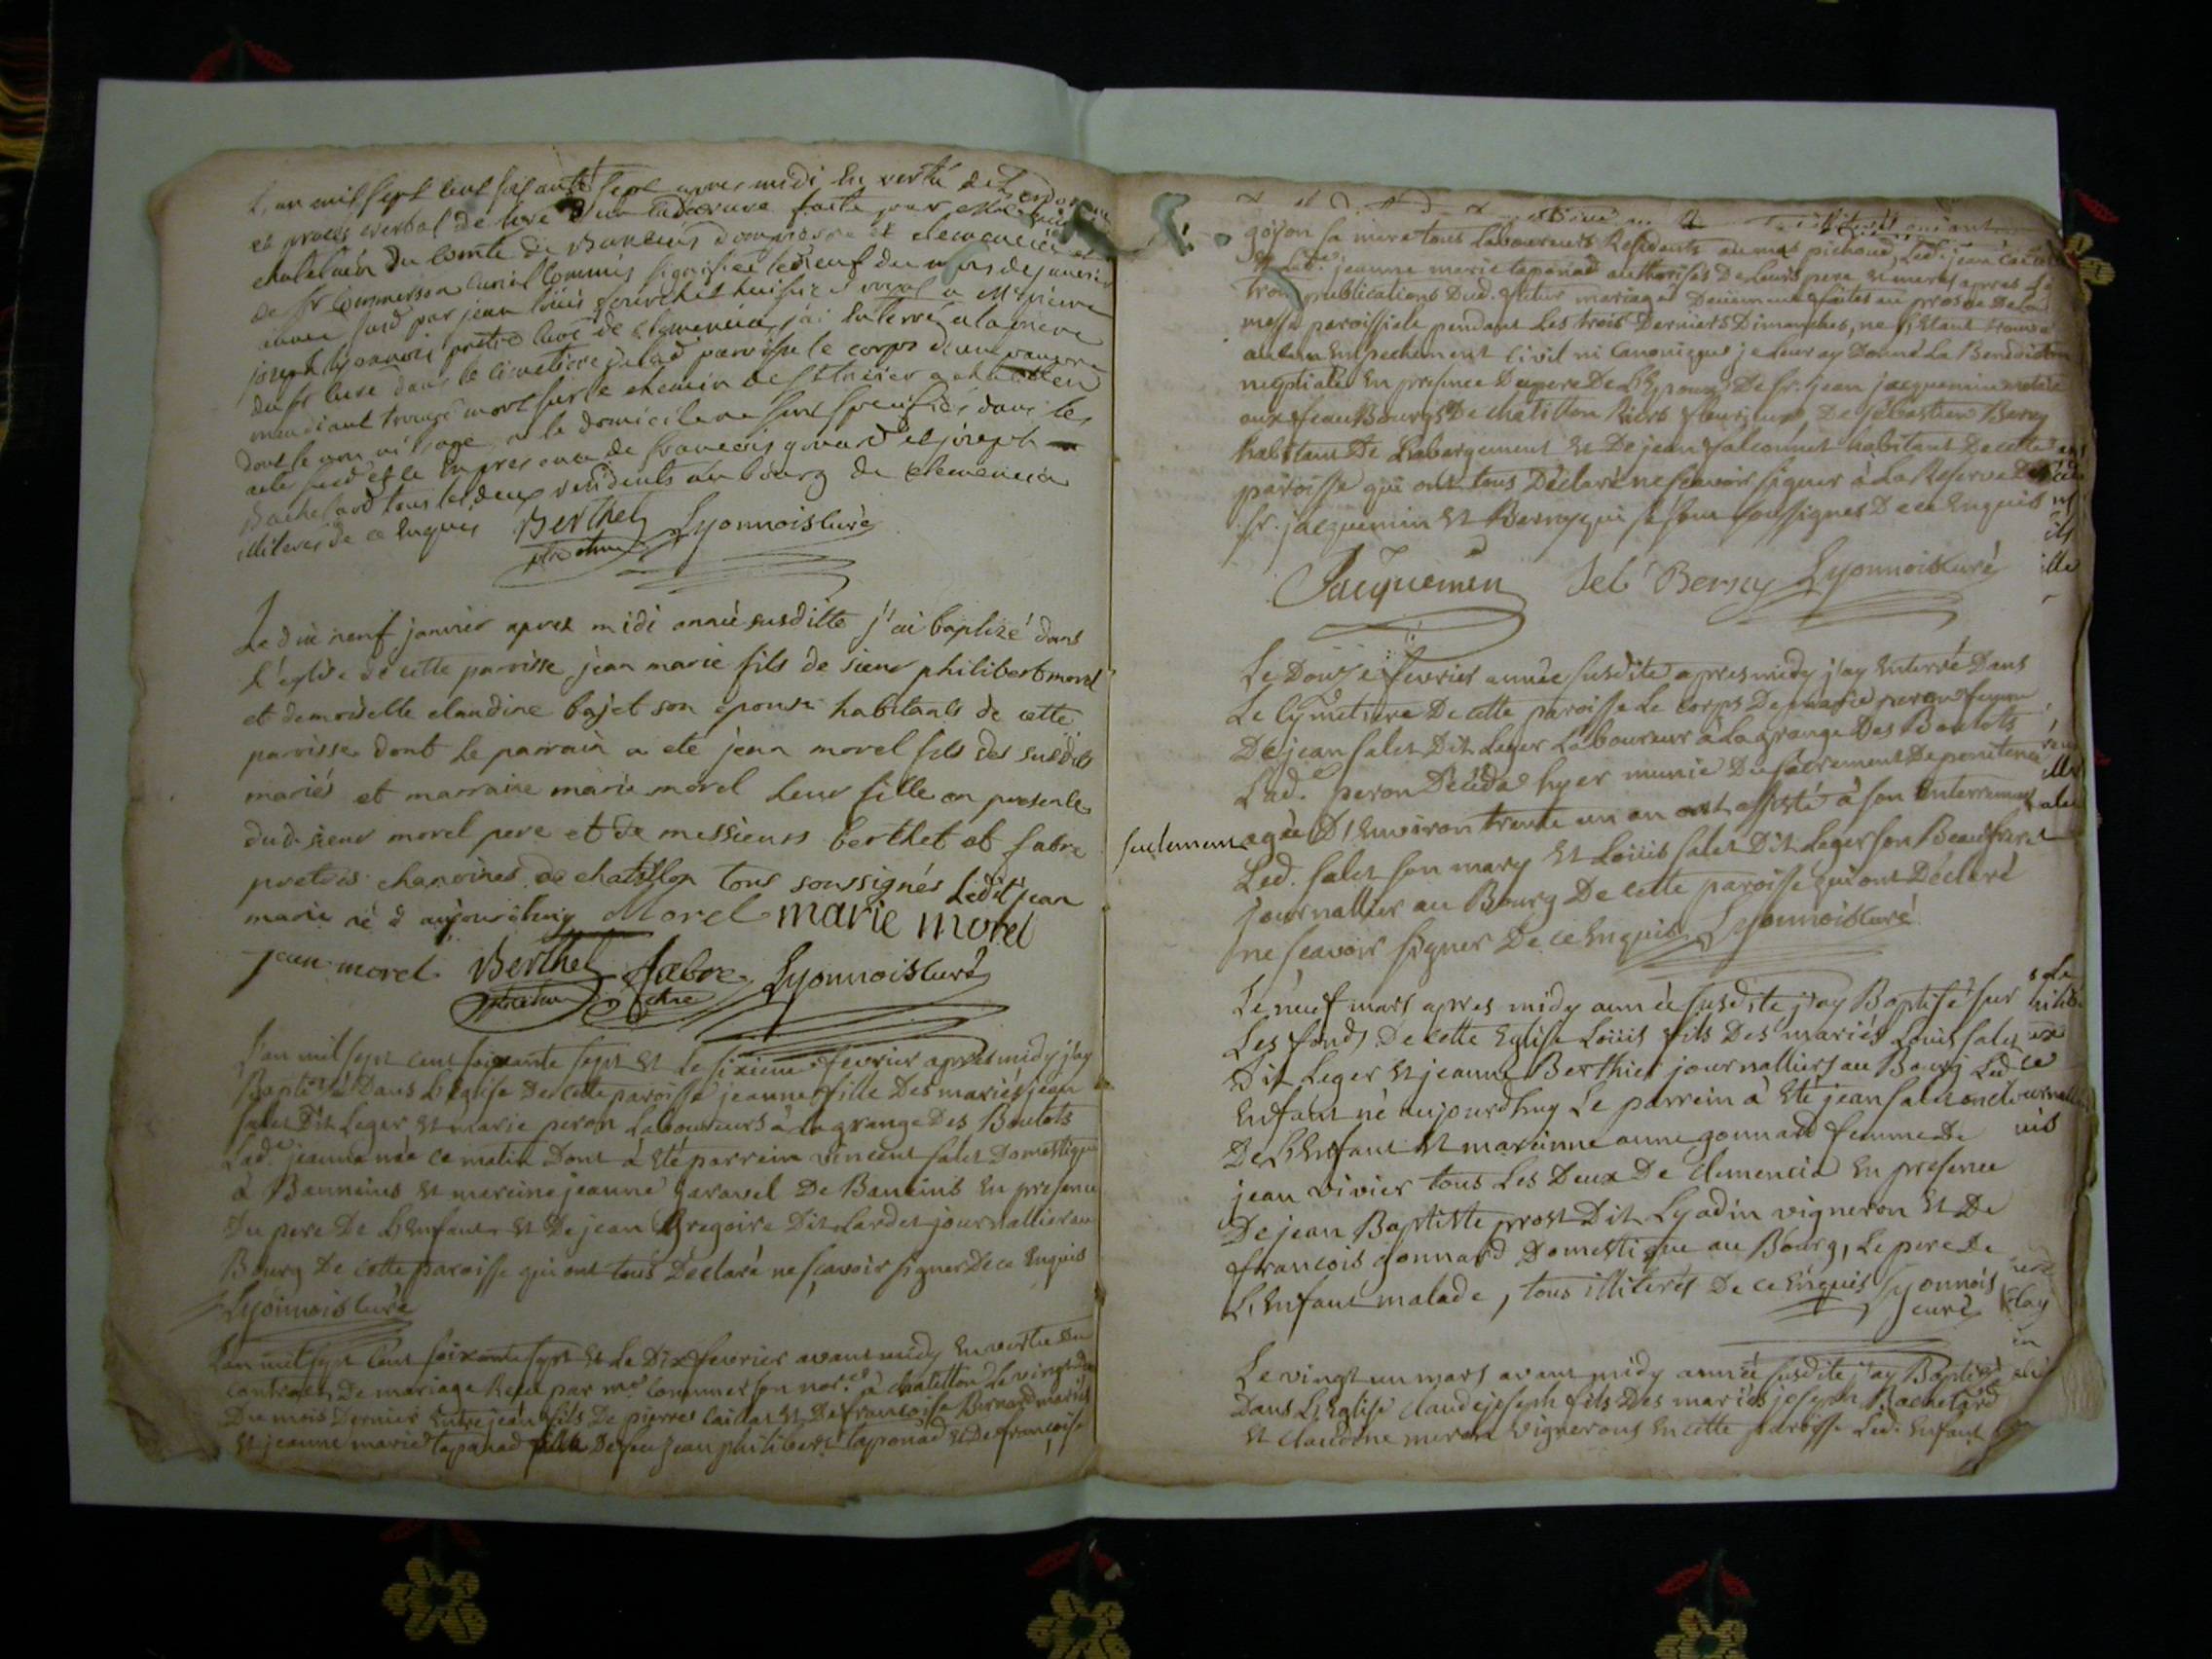 L'an mil sept cent soixante sept apres midi En vertu de L'ordonnance
et proces verbal de levé d'un cadavre faite par
chatelain du Comté de Banneins dompierre et clemencia
de Sr Commerson Curial Commis signifiée le neuf du mois de janvier
année susd par jean loüis huissier royal a Mre pierre
joseph lyonnois pretre curé de Clemencia, j'ai Enterré a la priere
dud Sr curé dans le cimetiere de lad paroisse le corps d'un pauvre
mendiant trouvé mort sur le chemin de a chatillon
dont le nom ni l'age, ni le domicile ne sont specifiés dans les
acte susd et ce En presence de francois gonard et joseph
Bachelard tous les deux residents au bourg de clemencia
illiterés de ce Enquis Berthet Lyonnois curé
ptre chne
Le dix neuf janvier apres midi année susditte j'ai baptizé dans
l'église de cette paroisse jean marie fils de sieur philibert morel
et demoiselle claudine bajet son epouse habitants de cette
paroisse dont le parrain a eté jean morel fils des susdits
mariés et marraine marie morel leur fille en presence
dud. sieur morel pere et de messieurs berthet et fabre
pretres chanoines de chatillon tous soussignés Ledit jean
marie né d aujourdhuy Morel marie morel
jean morel Berthet fabre Lyonnois curé
ptre chne chne
L'an mil sept cent soixante sept et le sixieme fevrier apres midy j'ay
Baptisé Dans L'Eglise De cette paroisse jeanne fille Des mariés jean
salet Dit Leger et marie peron Laboureurs à la grange Des Boulots
Lad.e jeanne née ce matin Dont à Eté parrein vincent salet Domestique
à Banneins et mareine jeanne garavel De Baneins En presence
Du pere De L'Enfant et De jean Gregoire Dit Lardet journallier au
Bourg De cette paroisse qui ont tous Déclaré ne sçavoir signer De ce Enquis
Lyonnois curé
L'an mil sept cent soixante sept et Le Dix fevrier avant midy En vertu Du
contract De mariage Reçu par me Commerson not.re à chatillon Le vingt
Du mois Dernier Entre jean fils De pierre caidat et De francoise Bernard mariés
et jeanne marie taponad fille De feu jean philibert taponad et De françoise
goyon sa mere tous Laboureurs Residents au mas pichoud, Led. jean
et Lad.e jeanne marie taponad authorisés De Leurs pere et meres apres Les
trois publications Dud. futur mariage Deüement faites au prosne De La
messe paroissiale pendant Les trois Derniers Dimanches, ne s'étant trouvé
aucun Empechement civil ni Canonique je Leur ay Donné La Benediction
nuptiale En presence Du pere De L'Epoux De Sr. jean jacquemin notaire
aux feau Bourgs De chatillon De Sébastien Berny
habitant De Labergement et De jean falconnet habitant De cette
paroisse qui ont tous Déclaré ne scavoir signer à La Reserve Des
Sr. jacquemin et Berny qui se sont soussignés De ce Enquis
Jacquemin Seb Berny Lyonnois curé
Le Douze fevrier année susdite apres midy j'ay Enterré Dans
Le Cymetiere De cette paroisse Le corps De marie peron femme
De jean salet Dit Leger Laboureur à La grange Des Boulots
Lad.e peron Décédé hyer munie Du sacrement De penitence
seulement agée D'Environ trente un an ont assisté à son Enterrement
Led. salet son mary et Loüis salet Dit Leger son Beaufrere
journallier au Bourg De cette paroisse qui ont Déclaré
ne scavoir signer De ce Enquis Lyonnois curé
Le neuf mars apres midy année susdite j'ay Baptisé sur
Les fonds De cette Eglise Loüis fils Des mariés Louis salet
Dit Leger et jeanne Berthier journalliers au Bourg Led.
Enfant né aujourdhuy Le parrein à Eté jean salet oncle
De L'Enfant et mareinne anne gonnard femme De
jean vivier tous Les Deux De clemencia En presence
De jean Baptiste prost Dit Lyadin vigneron et De
francois gonnard Domestique au Bourg, Le pere De
L'Enfant malade, tous illiterés De ce Enquis Lyonnois
curé
Le vingt un mars avant midy année susdite j'ay Baptisé
Dans L'Eglise claude joseph fils Des mariés joseph Bachelard
et claudine meron vignerons En cette paroisse Led. Enfant